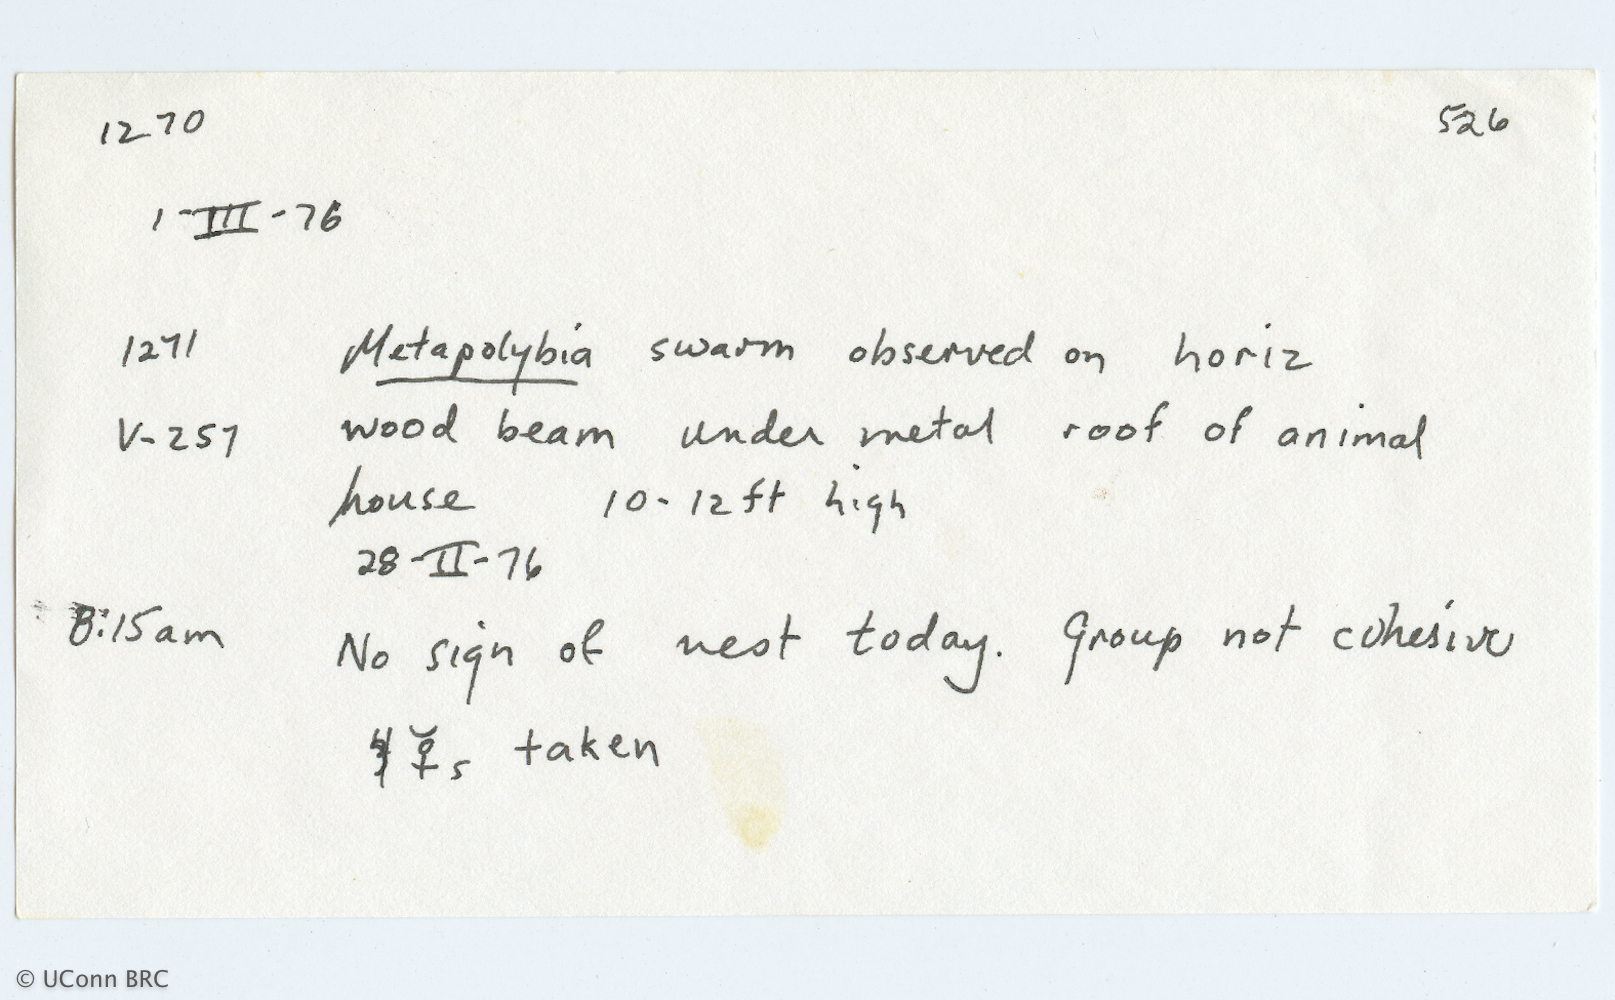 1270 526
1-III-76
1271 Metapolybia swarm observed on horiz
V-257 wood beam under metal roof of animal
house 10-12ft high
28-II-76
8:15am No sign of nest today. Group not cohesive
☿s taken
© UConn BRC